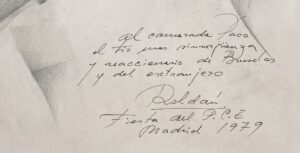 al camarada Paco
el tío mas sinvergüenza
y reaccionario de Bruselas
y del extranjero
Roldán
Fiesta del P.C.E
Madrid 1979